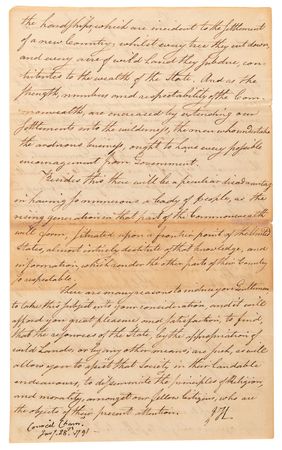 the hardships, which are incident to the settlement
of a new Country; whilst every tree they cut down,
and every acre of wild land they subdue, con-
tributes to the wealth of the State. And as the
strength, numbers and respectability of the Com-
monwealth, are increased by extending our
Settlements into the wilderness, the men who undertake
the arduous business, ought to have every possible
encouragement from Government.
Besides this there will be a peculiar disadvantage
in having so numerous a body of people, as the
rising generation in that part of the Commonwealth
will form, situated upon a frontier point of the United
States, almost intirely destitute of that knowledge, and
information, which render the other parts of their Country
so respectable.
There are many reasons to induce you Gentlemen
to take this subject into your consideration, and it will
afford you great pleasure and satisfaction, to find,
that the resources of the State, by the appropriation of
wild Lands, or by any other means, are such, as will
allow you to assist that Society in their laudable
endeavours, to disseminate the principles of Religion,
and morality, amongst our fellow Citizens, who are
the objects of their present attention.
JH
Council Cham.
Jany. 28th 1791